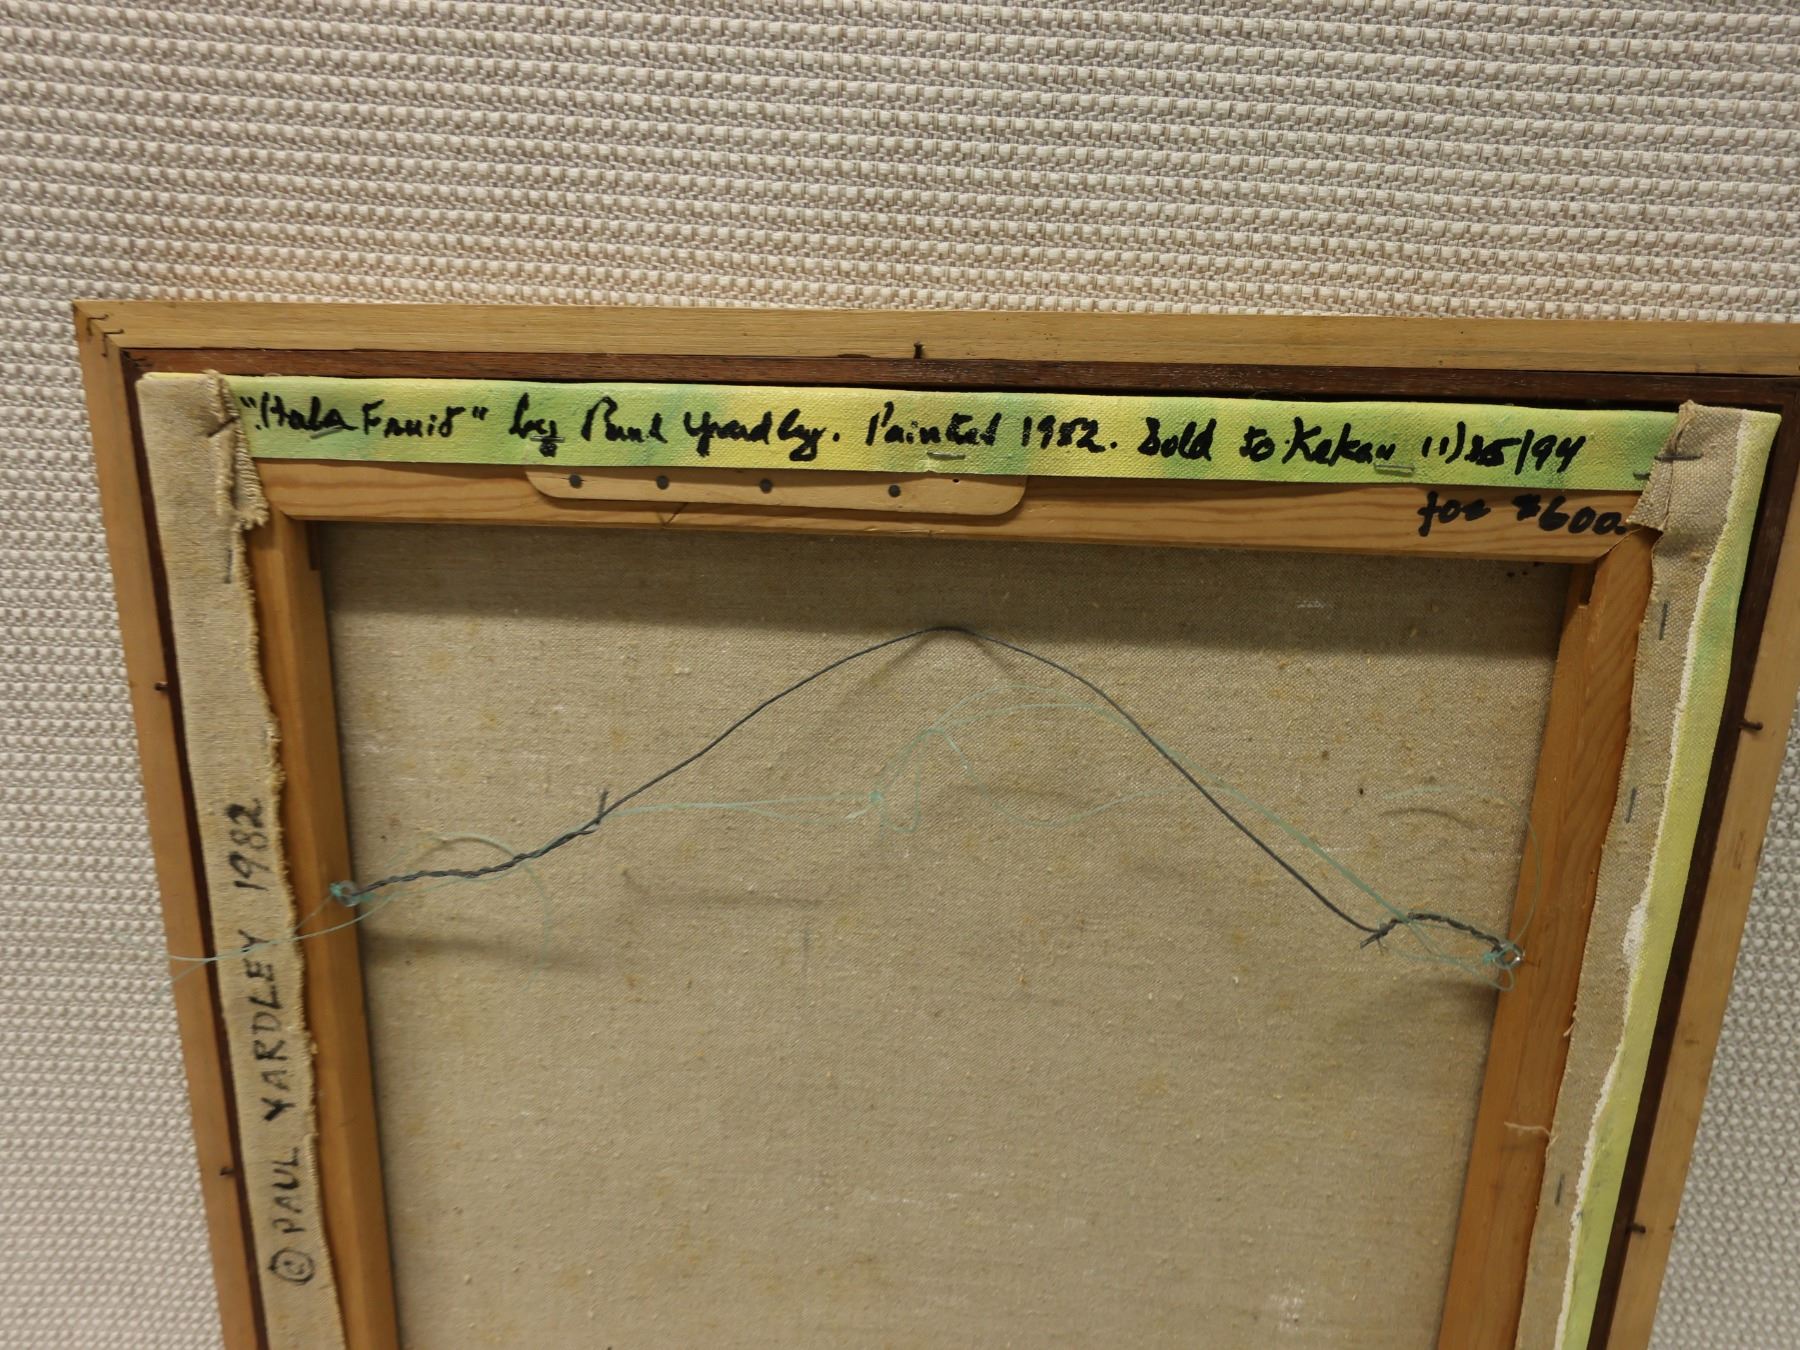 "Hala Fruit" by Paul Yardley. Painted 1982. Sold to Kekau 11/25/94
for $600.
© PAUL YARDLEY 1982